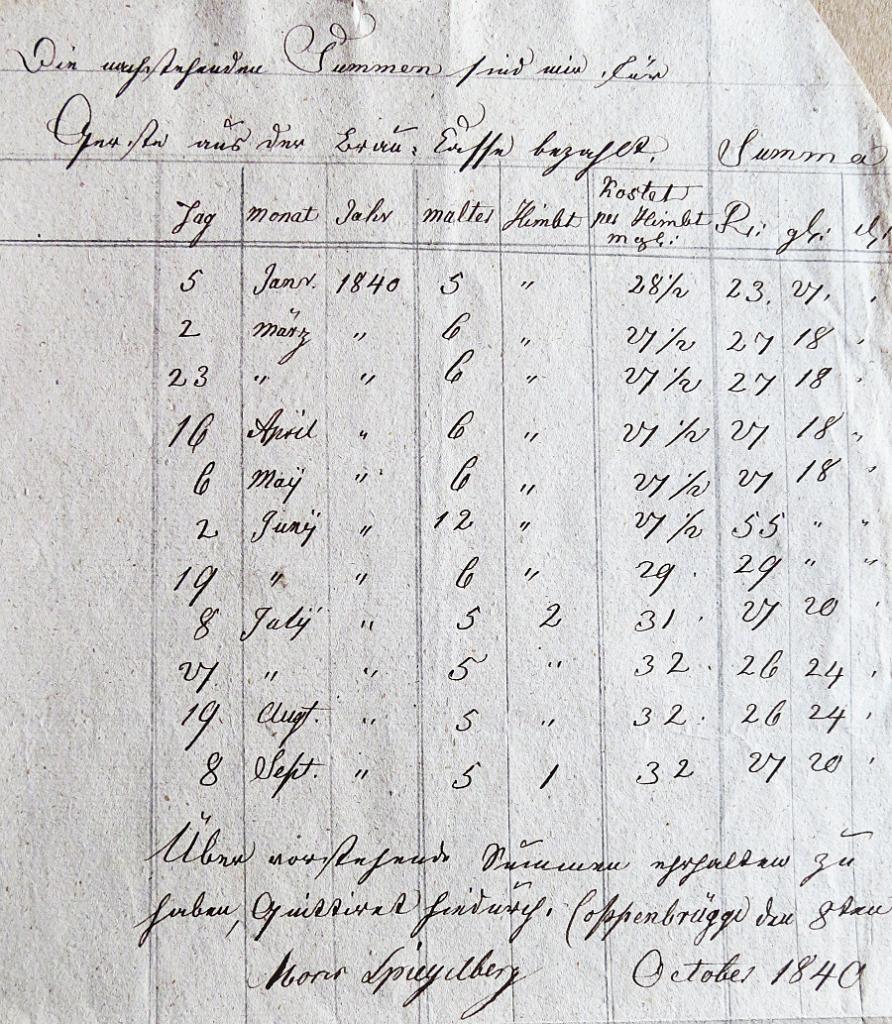 Die nachstehenden Summen sind mir für
Gerste aus der Brau-Casse bezahlt. Summa
Tag monat Jahr malter Himbt Kostet per Himbt mgl: Rt: gl: d:
5 Janr. 1840 5 " 28 1/2 23. 27. "
2 März " 6 " 27 1/2 27 18 "
23 " " 6 " 27 1/2 27 18 "
16 April " 6 " 27 1/2 27 18 "
6 Maÿ " 6 " 27 1/2 27 18 "
2 Junÿ " 12 " 27 1/2 55 " "
19 " " 6 " 29. 29 " "
8 Julÿ " 5 2 31. 27 20 "
27. " " 5 " 32. 26 24 "
19. Augt. " 5 " 32. 26 24 "
8 Sept. " 5 1 32 27 20 "
Über vorstehende Summen erhalten zu
haben, Quittiret hiedurch. Coppenbrügge den 8ten
Moris Spiegelberg October 1840